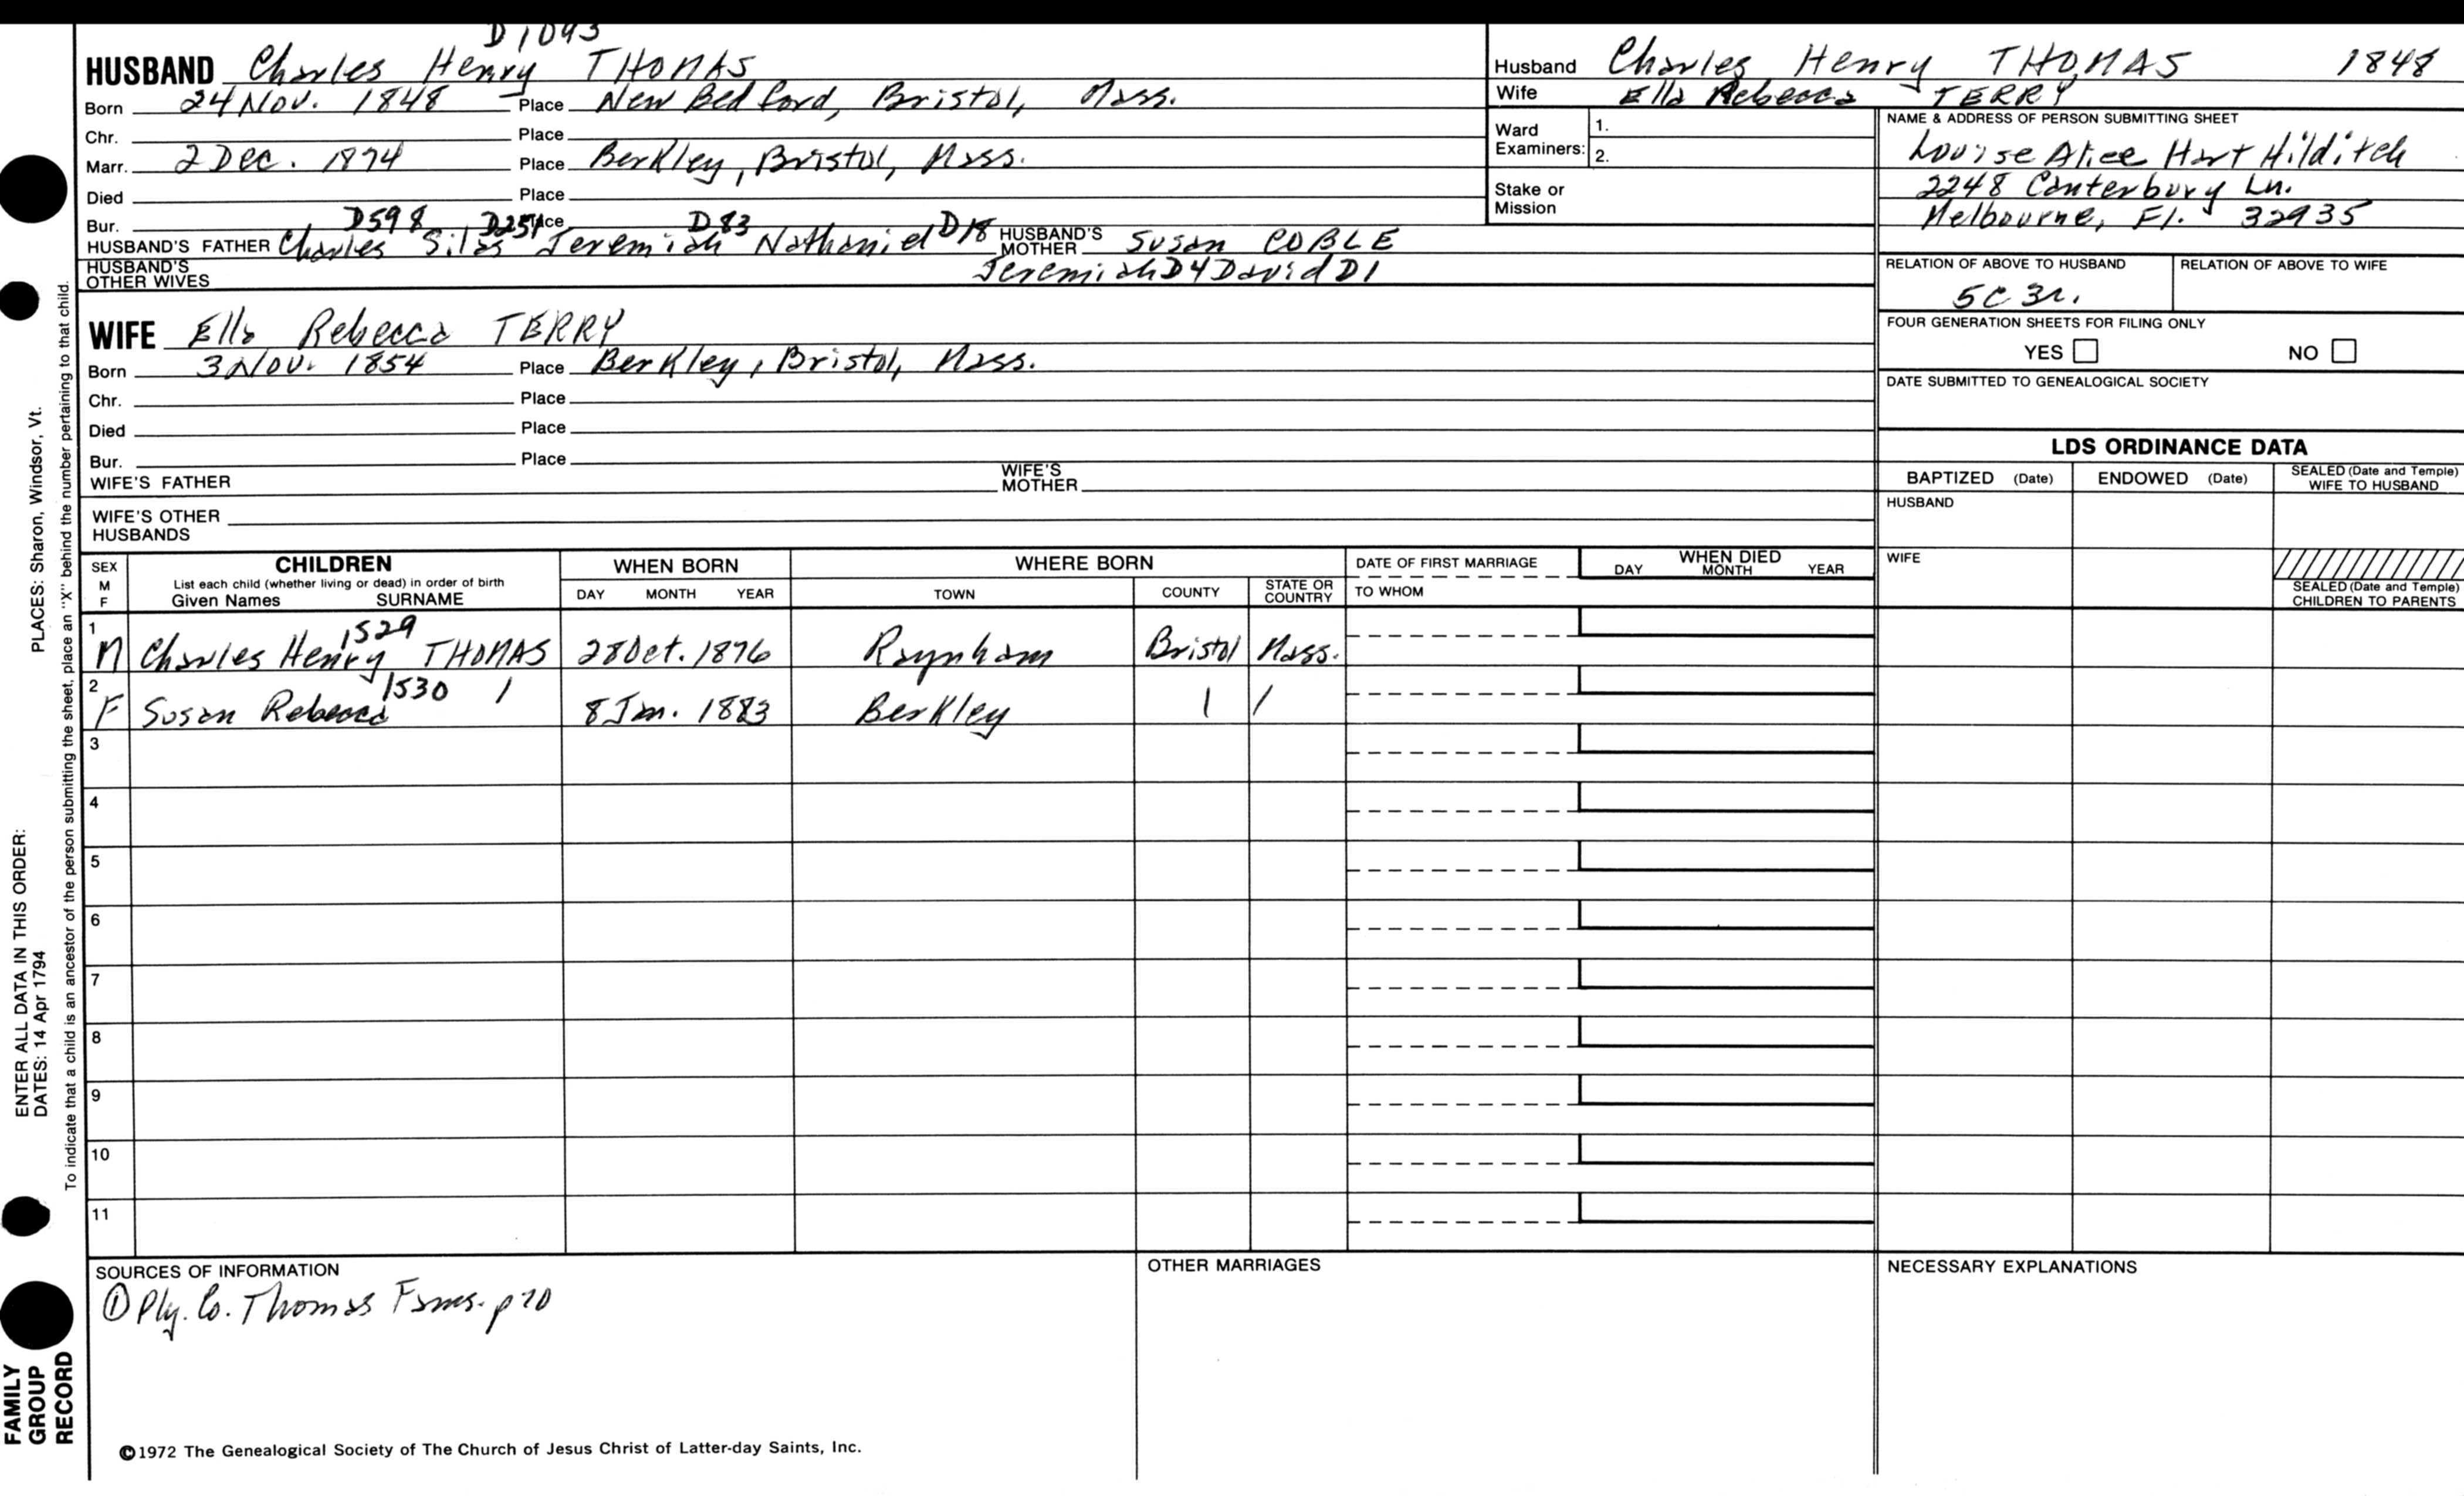 D1093
HUSBAND Charles Henry THOMAS
Born 24 Nov. 1848 Place New Bedford, Bristol, Mass.
Chr. Place
Marr. 2 Dec. 1874 Place Berkley, Bristol, Mass.
Died Place
Bur. Place
D598 D251 D83
HUSBAND'S FATHER Charles Silas Jeremiah Nathaniel D18 HUSBAND'S MOTHER Susan COBLE
HUSBAND'S OTHER WIVES Jeremiah D4 David D1
WIFE Ella Rebecca TERRY
Born 3 Nov. 1854 Place Berkley, Bristol, Mass.
Chr. Place
Died Place
Bur. Place
WIFE'S FATHER WIFE'S MOTHER
WIFE'S OTHER HUSBANDS
Husband Charles Henry THOMAS 1848
Wife Ella Rebecca TERRY
Ward Examiners: 1.
2.
Stake or Mission
NAME & ADDRESS OF PERSON SUBMITTING SHEET
Louise Alice Hart Hilditch
2248 Canterbury Ln.
Melbourne, Fl. 32935
RELATION OF ABOVE TO HUSBAND RELATION OF ABOVE TO WIFE
5C 3r.
FOUR GENERATION SHEETS FOR FILING ONLY
YES NO
DATE SUBMITTED TO GENEALOGICAL SOCIETY
LDS ORDINANCE DATA
BAPTIZED (Date) ENDOWED (Date) SEALED (Date and Temple) WIFE TO HUSBAND
HUSBAND
WIFE
SEALED (Date and Temple) CHILDREN TO PARENTS
SEX M F CHILDREN WHEN BORN WHERE BORN DATE OF FIRST MARRIAGE WHEN DIED
List each child (whether living or dead) in order of birth
Given Names SURNAME DAY MONTH YEAR TOWN COUNTY STATE OR COUNTRY TO WHOM DAY MONTH YEAR
1529
1 M Charles Henry THOMAS 28 Oct. 1876 Raynham Bristol Mass.
1530
2 F Susan Rebecca / 8 Jan. 1883 Berkley / /
3
4
5
6
7
8
9
10
11
SOURCES OF INFORMATION
① Ply. Co. Thomas Fams. p 70
OTHER MARRIAGES
NECESSARY EXPLANATIONS
©1972 The Genealogical Society of The Church of Jesus Christ of Latter-day Saints, Inc.
FAMILY GROUP RECORD
ENTER ALL DATA IN THIS ORDER:
DATES: 14 Apr 1794
PLACES: Sharon, Windsor, Vt.
To indicate that a child is an ancestor of the person submitting the sheet, place an "X" behind the number pertaining to that child.